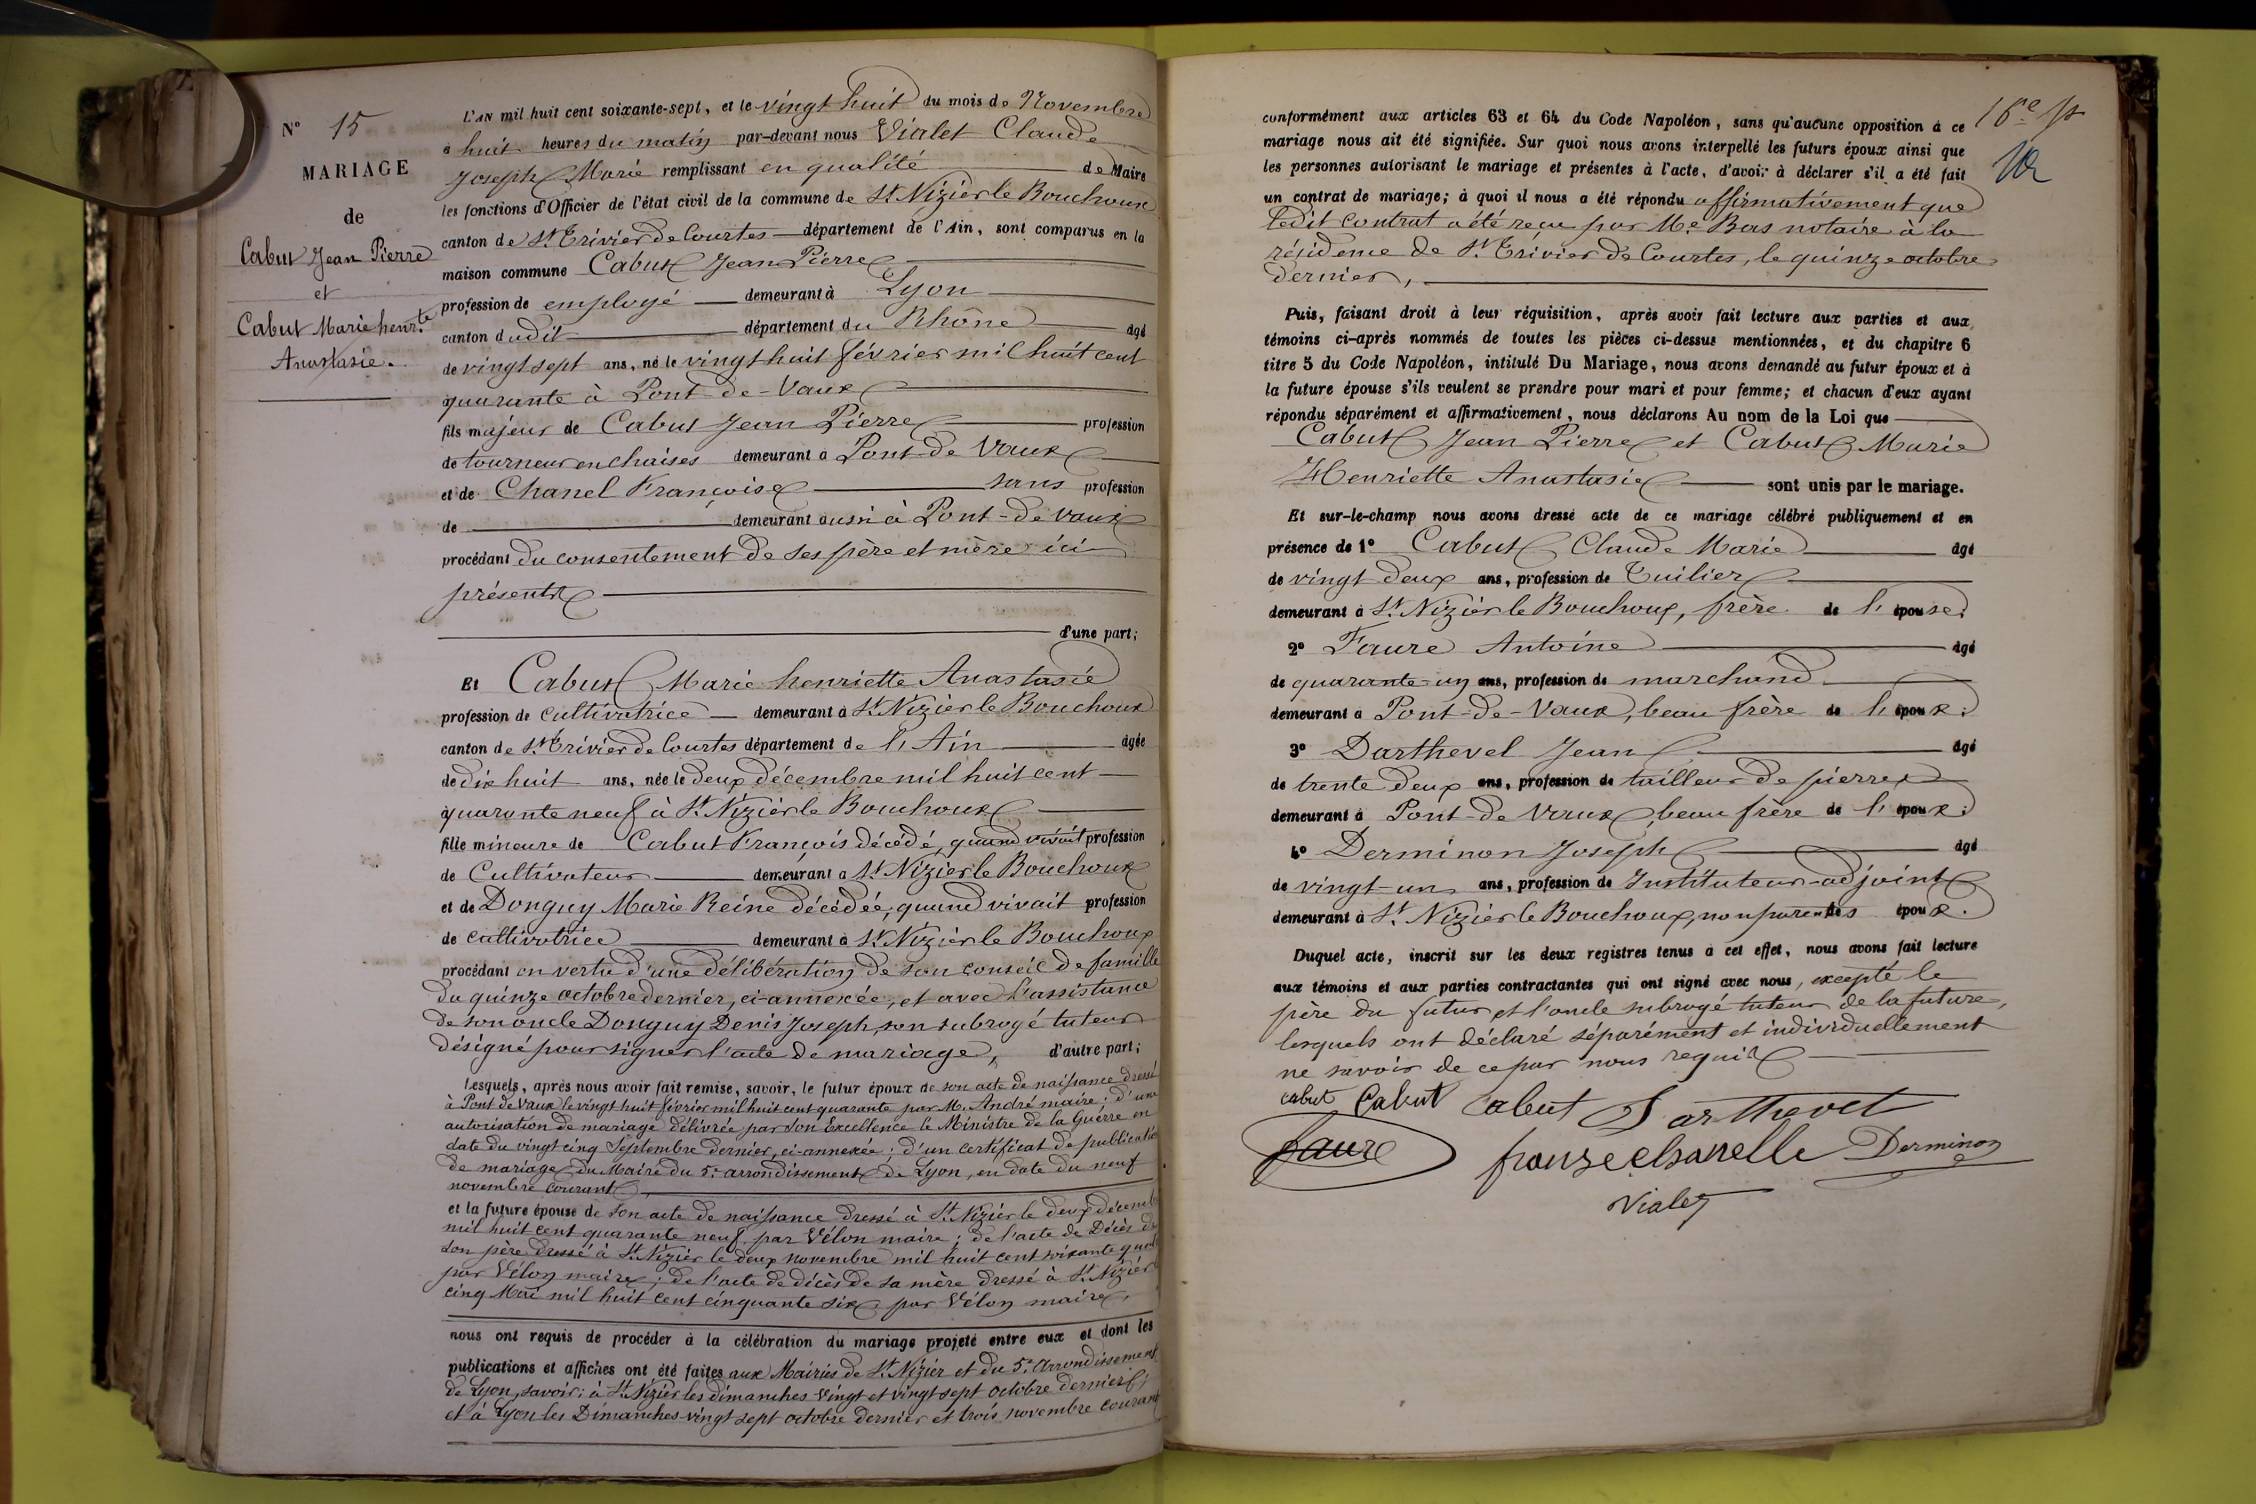 N° 15
MARIAGE
de
Cabut Jean Pierre
et
Cabut Marie henr.te
Anastasie.
L'AN mil huit cent soixante-sept, et le vingt huit du mois de Novembre
à huit heures du matin par-devant nous Vialet Claude
Joseph Marie remplissant en qualité de Maire
les fonctions d'Officier de l'état civil de la commune de St Nizier le Bouchoux
canton de St Trivier de Courtes département de l'Ain, sont comparus en la
maison commune Cabut Jean Pierre
profession de employé demeurant à Lyon
canton dudit département du Rhône âgé
de vingt sept ans, né le vingt huit février mil huit cent
quarante à Pont-de-Vaux
fils majeur de Cabut Jean Pierre profession
de tourneur en chaises demeurant à Pont-de-Vaux
et de Chanel Françoise sans profession
de demeurant aussi à Pont-de-Vaux
procédant du consentement de ses père et mère ici
présents
d'une part;
Et Cabut Marie henriette Anastasie
profession de cultivatrice demeurant à St Nizier le Bouchoux
canton de St Trivier de Courtes département de l'Ain âgée
de dix huit ans, née le deux décembre mil huit cent
quarante neuf à St Nizier le Bouchoux
fille mineure de Cabut François décédé, quand vivait profession
de Cultivateur demeurant à St Nizier le Bouchoux
et de Donguy Marie Reine décédée, quand vivait profession
de cultivatrice demeurant à St Nizier le Bouchoux
procédant en vertu d'une délibération de son conseil de famille
du quinze octobre dernier, ci-annexée, et avec l'assistance
de son oncle Donguy Denis Joseph, son subrogé tuteur
désigné pour signer l'acte de mariage, d'autre part;
Lesquels, après nous avoir fait remise, savoir, le futur époux de son acte de naissance dressé
à Pont de Vaux le vingt huit février mil huit cent quarante par M. André maire; d'une
autorisation de mariage délivrée par Son Excellence le Ministre de la Guerre en
date du vingt cinq Septembre dernier, ci-annexée; d'un certificat de publication
de mariage du Maire du 5e arrondissement de Lyon, en date du neuf
novembre courant
et la future épouse de son acte de naissance dressé à St Nizier le deux décembre
mil huit cent quarante neuf par Vélon maire; de l'acte de Décès de
son père dressé à St Nizier le deux novembre mil huit cent soixante
par Vélon maire; de l'acte de décès de sa mère dressé à St Nizier
cinq Mai mil huit cent cinquante six par Vélon maire,
nous ont requis de procéder à la célébration du mariage projeté entre eux et dont les
publications et affiches ont été faites aux Mairies de St Nizier et du 5e Arrondissement
de Lyon, savoir: à St Nizier les dimanches vingt et vingt sept octobre dernier
et à Lyon les Dimanches vingt sept octobre dernier et trois novembre courant
conformément aux articles 63 et 64 du Code Napoléon, sans qu'aucune opposition à ce
mariage nous ait été signifiée. Sur quoi nous avons interpellé les futurs époux ainsi que
les personnes autorisant le mariage et présentes à l'acte, d'avoir à déclarer s'il a été fait
un contrat de mariage; à quoi il nous a été répondu affirmativement que
ledit contrat a été reçu par Me Bas notaire à la
résidence de St Trivier de Courtes, le quinze octobre
dernier,
Puis, faisant droit à leur réquisition, après avoir fait lecture aux parties et aux
témoins ci-après nommés de toutes les pièces ci-dessus mentionnées, et du chapitre 6
titre 5 du Code Napoléon, intitulé Du Mariage, nous avons demandé au futur époux et à
la future épouse s'ils veulent se prendre pour mari et pour femme; et chacun d'eux ayant
répondu séparément et affirmativement, nous déclarons Au nom de la Loi que
Cabut Jean Pierre et Cabut Marie
Henriette Anastasie sont unis par le mariage.
Et sur-le-champ nous avons dressé acte de ce mariage célébré publiquement et en
présence de 1° Cabut Claude Marie âgé
de vingt deux ans, profession de Tuilier
demeurant à St Nizier le Bouchoux, frère de l'épouse.
2° Faure Antoine âgé
de quarante-un ans, profession de marchand
demeurant à Pont-de-Vaux, beau frère de l'époux.
3° Darthevel Jean âgé
de trente deux ans, profession de tailleur de pierres
demeurant à Pont-de-Vaux, beau frère de l'époux.
4° Derminon Joseph âgé
de vingt-un ans, profession de Instituteur-adjoint
demeurant à St Nizier le Bouchoux, non parent des époux.
Duquel acte, inscrit sur les deux registres tenus à cet effet, nous avons fait lecture
aux témoins et aux parties contractantes qui ont signé avec nous, excepté le
père du futur et l'oncle subrogé tuteur de la future,
lesquels ont déclaré séparément et individuellement
ne savoir de ce par nous requis
cabut Cabut cabut Darthevel
faure Derminon
Vialet